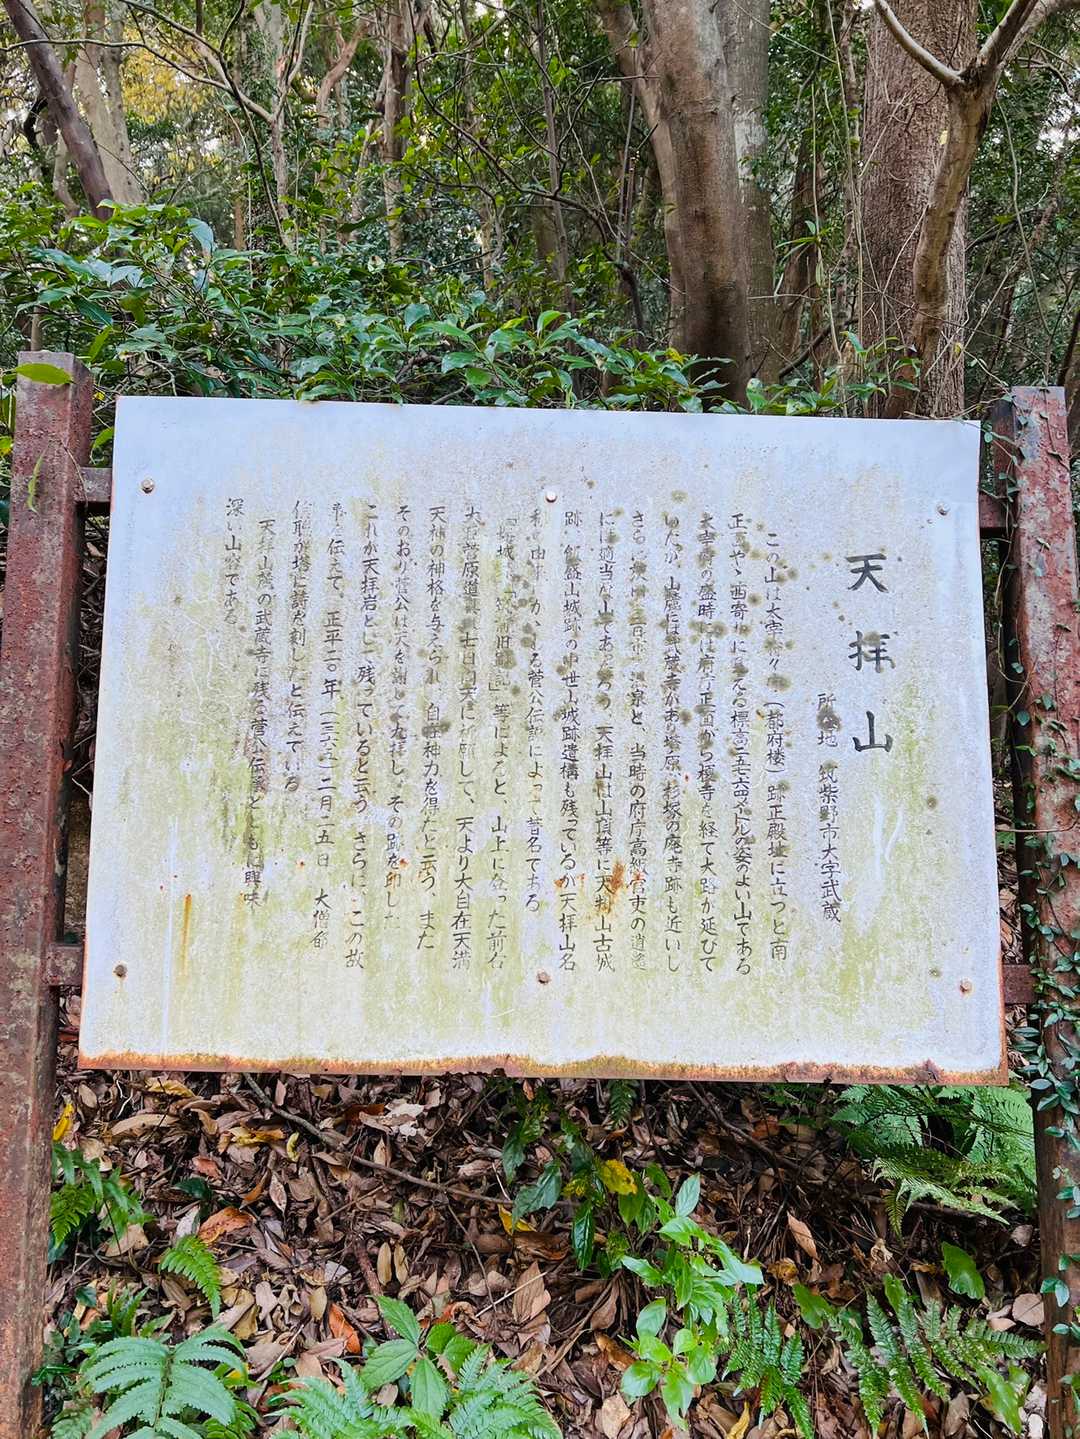 天拝山
所在地 筑紫野市大字武蔵
この山は大宰府(都府楼)跡正殿址に立つと南
正面やゝ西寄りに見える標高二五七・六四メートルの姿のよい山である
太宰府の盛時には府庁正面から榎寺を経て大路が延びて
いたが、山麓には武蔵寺があり塔原、杉塚の廃寺跡も近いし
さらに次田温泉と、当時の府庁高級官吏の逍遥
には適当な山であろう、天拝山は山頂等に天拝山古城
跡、飯盛山城跡の中世山城跡遺構も残っているが天拝山名
由来かゝる菅公伝説によって著名である
等によると、山上に登った前右
大臣菅原道真七日間天に祈願して、天より大自在天満
天神の神格を与えられ、自在神力を得たと云う、また
そのおり菅公は天を謝して九拝し、その跡を印した
これが天拝岩として残っていると云う さらに、この故
事を伝えて、正平二〇年(一三六五)二月二五日 大僧都
信聡が塔に詩を刻したと伝えている
天拝山麓の武蔵寺に残る菅公伝承とともに興味
深い山容である